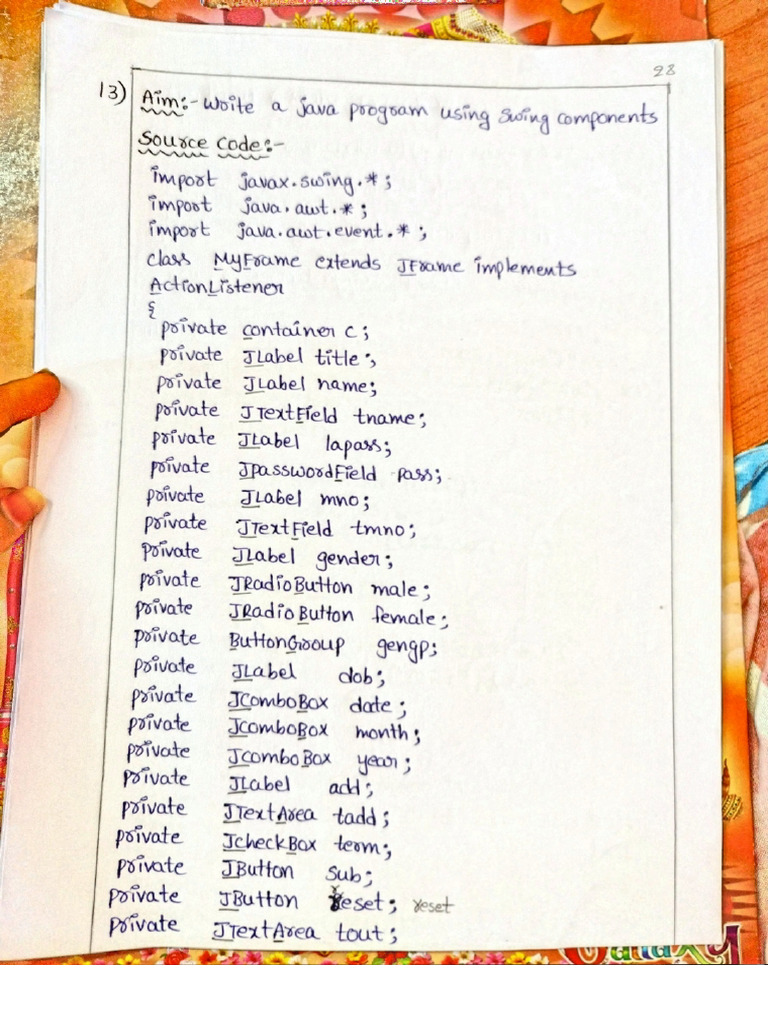 28
13) Aim:- Write a java program using Swing components
Source Code:-
import javax.swing.*;
import java.awt.*;
import java.awt.event.*;
class MyFrame extends JFrame implements
ActionListener
{
private container c;
private JLabel title;
private JLabel name;
private JTextField tname;
private JLabel lapass;
private JPasswordField pass;
private JLabel mno;
private JTextField tmno;
private JLabel gender;
private JRadioButton male;
private JRadioButton female;
private ButtonGroup gengp;
private JLabel dob;
private JComboBox date;
private JComboBox month;
private JComboBox year;
private JLabel add;
private JTextArea tadd;
private JcheckBox term;
private JButton sub;
private JButton reset; reset
private JTextArea tout;
Galaxy